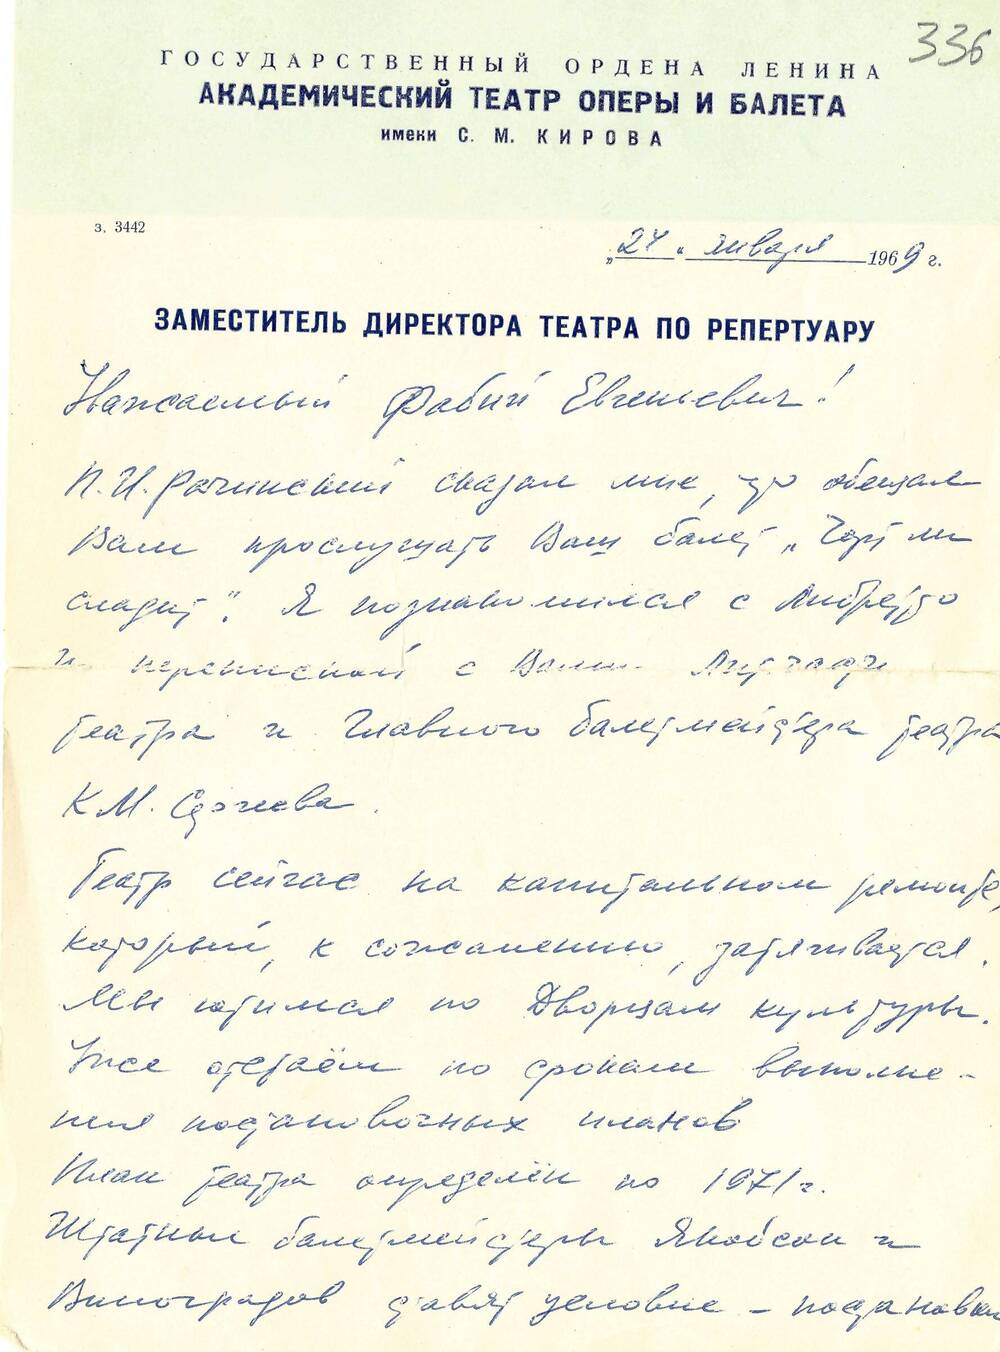 336
ГОСУДАРСТВЕННЫЙ ОРДЕНА ЛЕНИНА
АКАДЕМИЧЕСКИЙ ТЕАТР ОПЕРЫ И БАЛЕТА
имени С. М. КИРОВА
з. 3442
„24" января 1969 г.
ЗАМЕСТИТЕЛЬ ДИРЕКТОРА ТЕАТРА ПО РЕПЕРТУАРУ
Уважаемый Фабий Евгеньевич!
П.И. Рачинский сказал мне, что обещал
Вам прослушать Ваш балет „Чорт ли
сладит". Я познакомился с либретто
и перепиской с Вами
театра и Главного балетмейстера театра
К.М. Сергеева.
Театр сейчас на капитальном ремонте,
который, к сожалению, затягивается.
Мы ютимся по Дворцам культуры.
Уже отстаём по срокам выполне-
ния постановочных планов
План театра определён по 1971 г.
Штатные балетмейстеры Якобсон и
Виноградов ставят условие – постановки